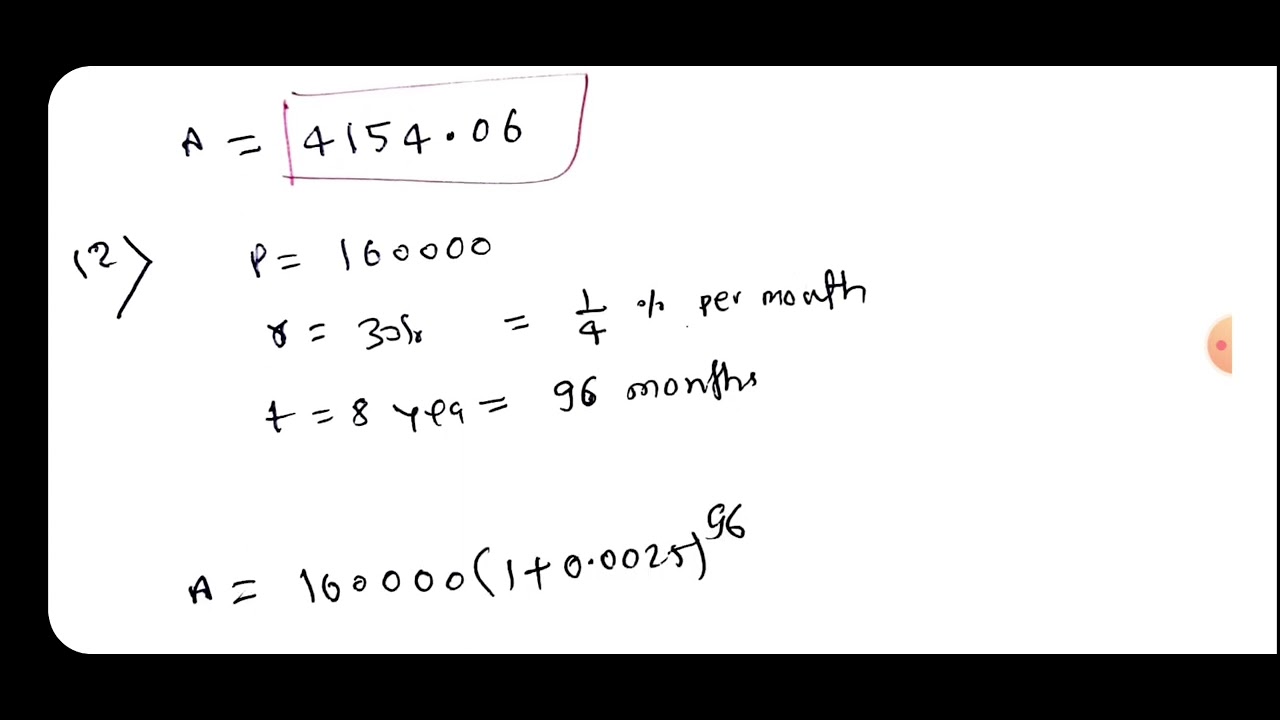 A = 4154.06
12) P = 160000
r = 3% = 1/4 % per month
t = 8 yea = 96 months
A = 160000(1+0.0025)^96